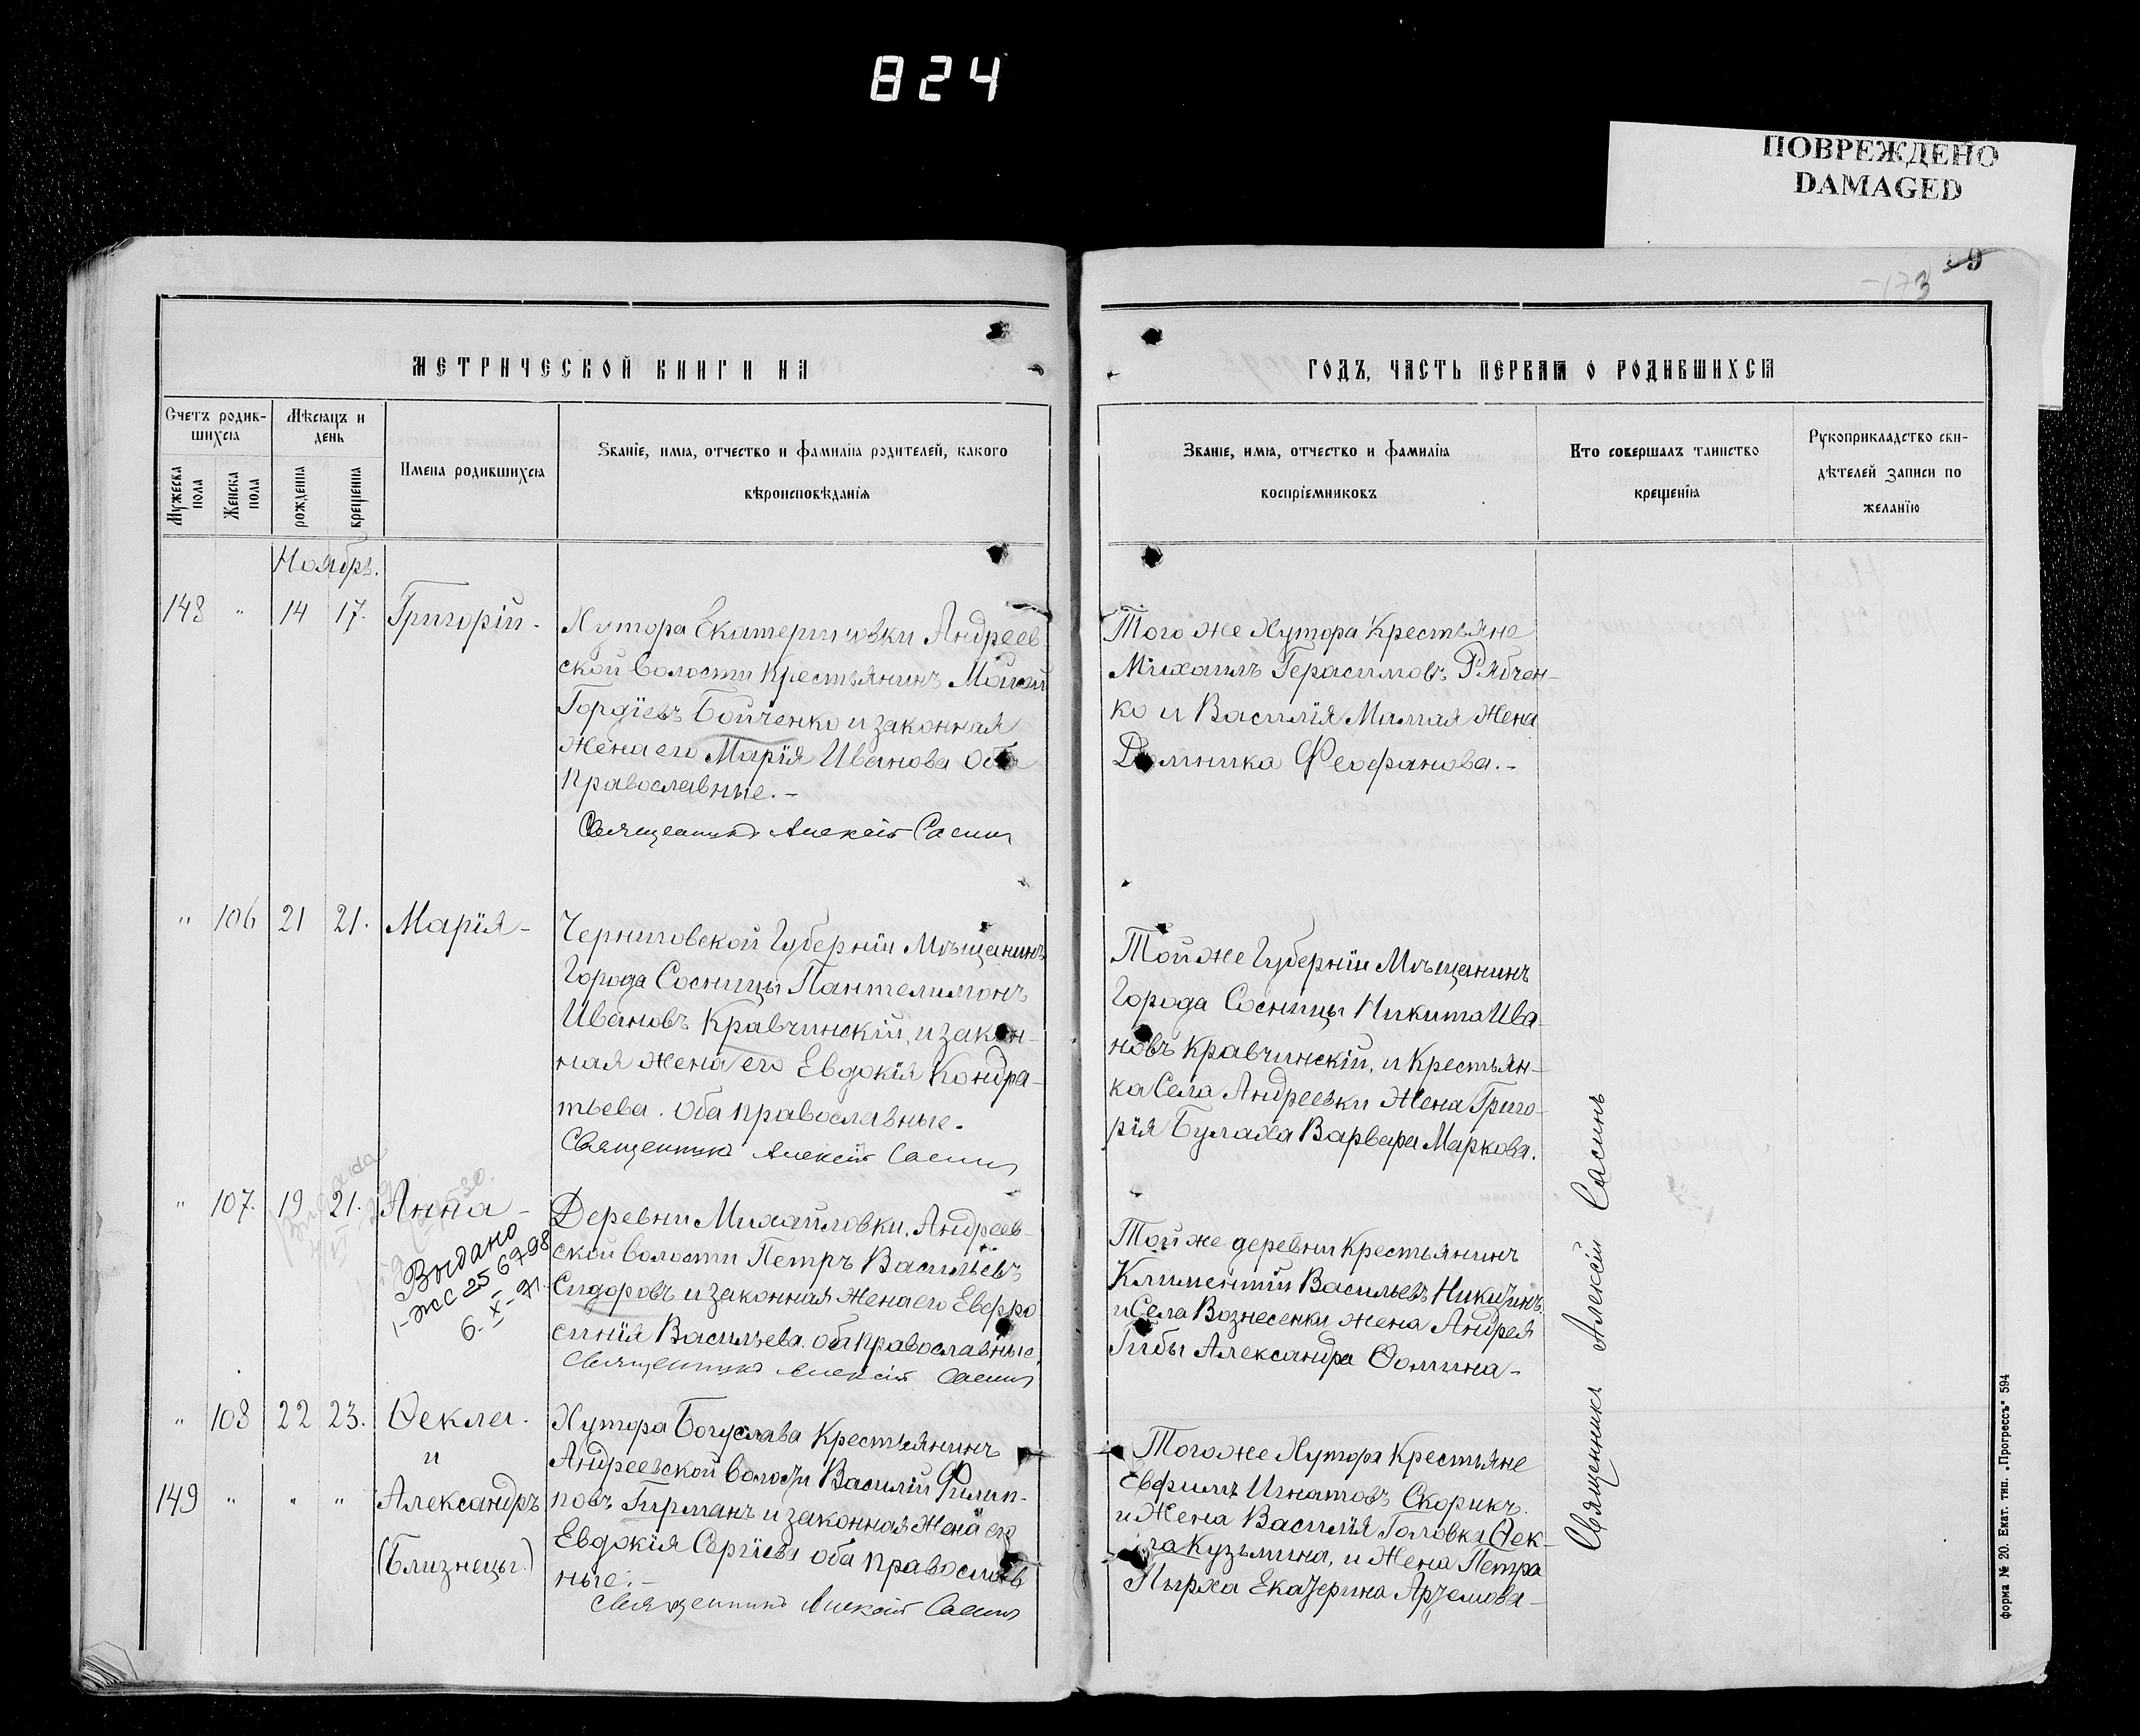 824
ПОВРЕЖДЕНО
DAMAGED
173
МЕТРИЧЕСКОЙ КНИГИ НА
ГОДЪ, ЧАСТЬ ПЕРВАЯ О РОДИВШИХСЯ
Счетъ родив-
шихся
Мужеска
пола
Женска
пола
Мѣсяцъ и
день
рожденія
крещенія
Имена родившихся
Званіе, имя, отчество и фамилія родителей, какого
вѣроисповѣданія
Званіе, имя, отчество и фамилія
воспріемниковъ
Кто совершалъ таинство
крещенія
Рукоприкладство сви-
дѣтелей записи по
желанію
Ноябрь.
148 " 14 17. Григорій -
Хутора Екатериновки Андреев
ской волости крестьянинъ Мойсей
Гордіевъ Бойченко и законная
жена его Марія Иванова Оба
православные. -
Священникъ Алексій Сасинъ
Того же Хутора Крестьяне
Михаилъ Герасимовъ Рябчен-
ко и Василія Мамая Жена
Домника Феофанова. -
" 106 21 21. Марія -
Черниговской Губерніи Мѣщанинъ
Города Сосницы Пантелимонъ
Ивановъ Кравчинскій, и закон-
ная жена его Евдокія Кондра-
тьева. Оба православные.
Священникъ Алексій Сасинъ
Той же Губерніи Мѣщанинъ
Города Сосницы Никита Ива-
новъ Кравчинскій, и Крестьян-
ка Села Андреевки Жена Григо-
рія Булаха Варвара Маркова.
" 107. 19 21. Анна -
Выдано
1-ЖС 256798
6. X - 71.
Деревни Михайловки, Андреев-
ской волости Петръ Васильевъ
Сидоровъ и законная жена его Евфро
синія Васильева. оба православные.
Священникъ Алексій Сасинъ
Той же деревни Крестьянинъ
Климентій Васильевъ Никитинъ.
и Села Вознесенки жена Андрея
Гибы Александра Ѳомина -
" 108 22 23. Ѳекла.
и
149 " " " Александръ
(Близнецы.)
Хутора Богуслава Крестьянинъ
Андреевской волости Василій Филип-
повъ Гирманъ и законная Жена его
Евдокія Сергіева оба православ
ные. -
Священникъ Алексій Сасинъ
Того же Хутора Крестьяне
Евфимъ Игнатовъ Скорикъ.
и Жена Василія Головка Ѳек-
ла Кузьмина, и Жена Петра
Пырха Екатерина Артемова -
Священникъ Алексій Сасинъ
форма № 20. Екат. тип. „Прогрессъ" 594